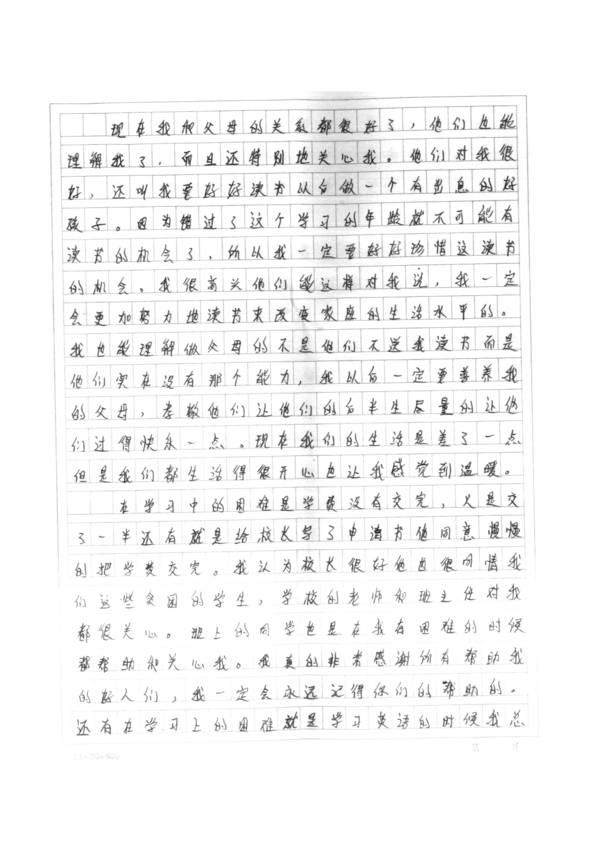 现在我和父母的关系都很好了，他们也能
理解我了，而且还特别地关心我。他们对我很
好，还叫我要好好读书以后做一个有出息的好
孩子。因为错过了这个学习的年龄就不可能有
读书的机会了，所以我一定要好好珍惜这读书
的机会。我很高兴他们能这样对我说，我一定
会更加努力地读书来改变家庭的生活水平的。
我也能理解做父母的不是他们不送我读书而是
他们实在没有那个能力，我以后一定要善养我
的父母，孝敬他们让他们的后半生尽量的让他
们过得快乐一点。现在我们的生活是差了一点
但是我们都生活得很开心也让我感觉到温暖。
在学习中的困难是学费没有交完，只是交
了一半还有就是给校长写了申请书他同意慢慢
的把学费交完。我认为校长很好他也很同情我
们这些贫困的学生，学校的老师和班主任对我
都很关心。班上的同学也是在我有困难的时候
都帮助和关心我。我真的非常感谢所有帮助我
的好人们，我一定会永远记得你们的帮助的。
还有在学习上的困难就是学习英语的时候我总